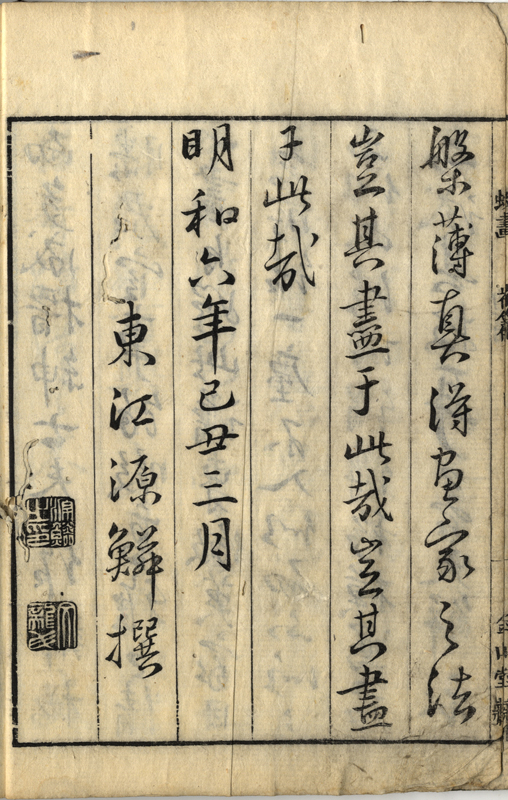 槃薄真得画家之法
豈其盡于此哉豈其盡
于此哉
明和六年己丑三月
東江源鱗撰